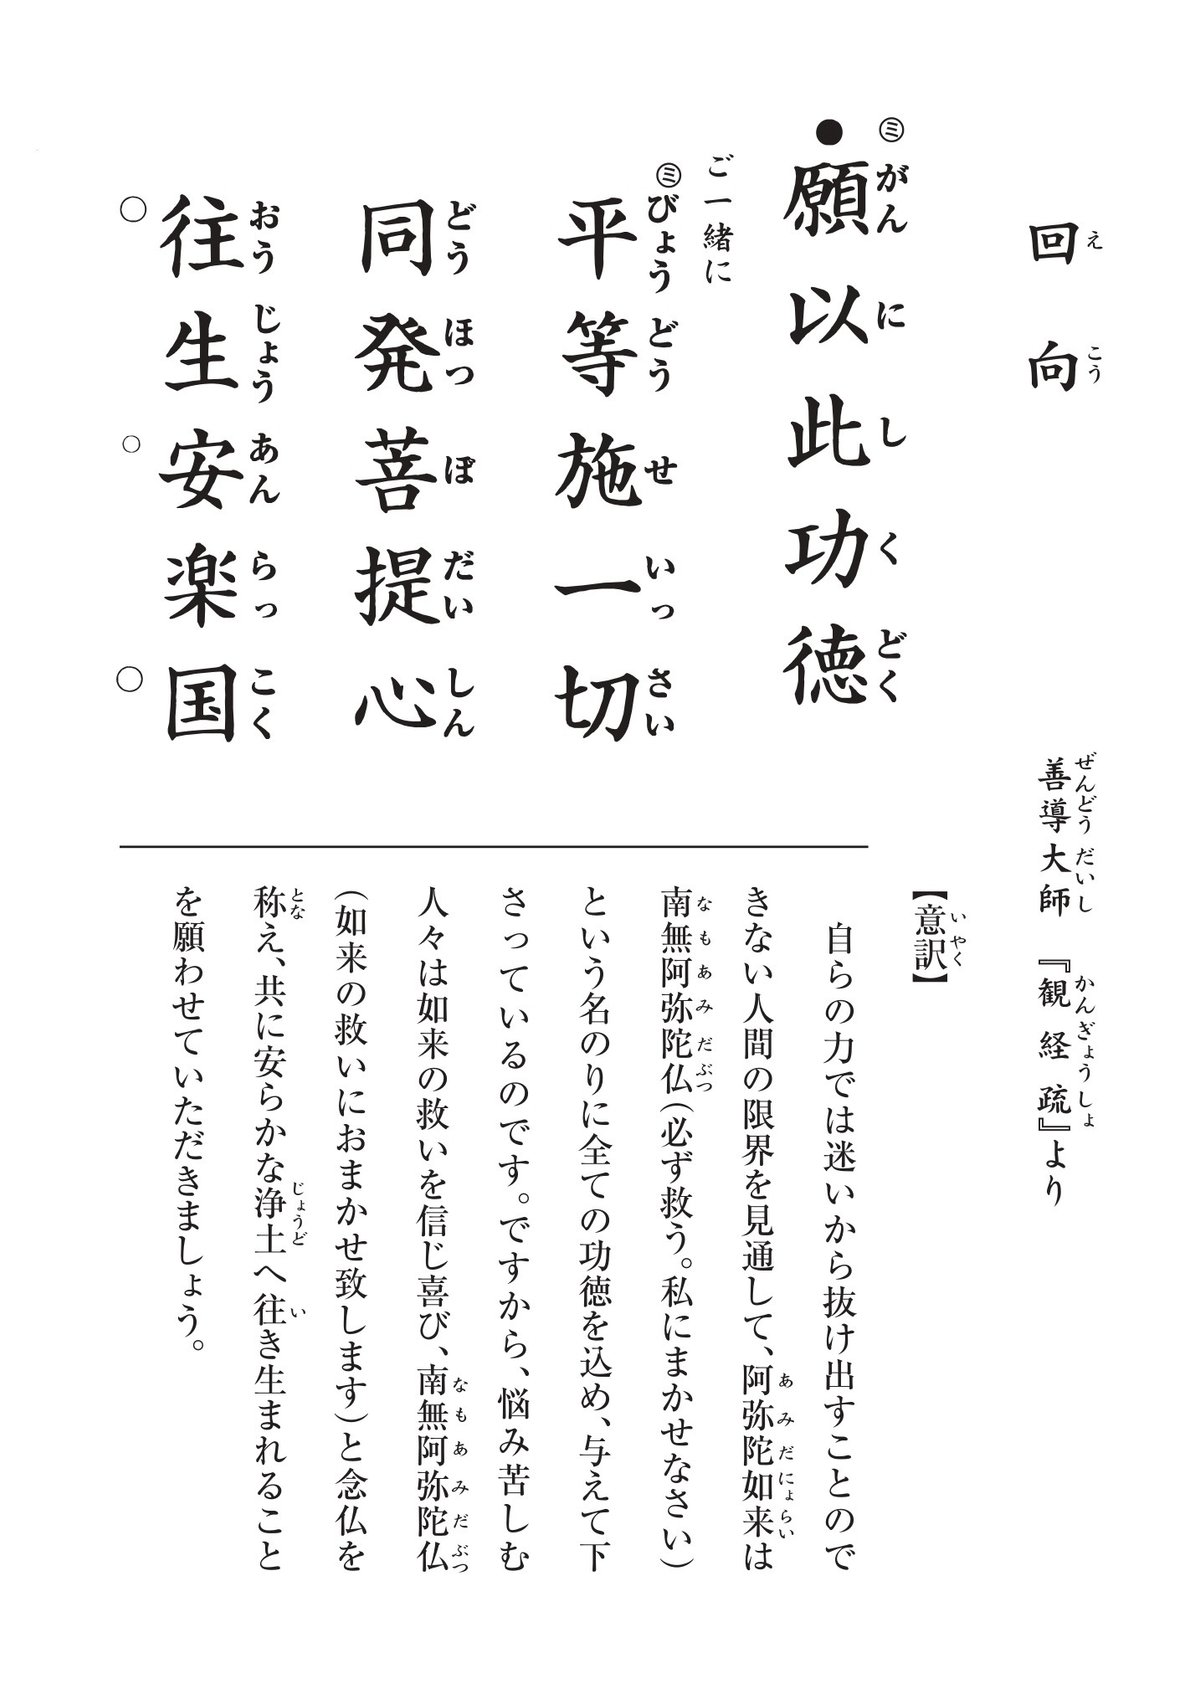 回向
えこう
善導大師『観経疏』より
ぜんどうだいし かんぎょうしょ
㋯ がんにしくどく
●願以此功徳
ご一緒に
㋯ びょうどうせいっさい
平等施一切
どうほつぼだいしん
同発菩提心
おうじょうあんらっこく
往生安楽国
○ ○ ○
【意訳】
いやく
自らの力では迷いから抜け出すことので
きない人間の限界を見通して、阿弥陀如来は
あみだにょらい
南無阿弥陀仏(必ず救う。私にまかせなさい)
なもあみだぶつ
という名のりに全ての功徳を込め、与えて下
さっているのです。ですから、悩み苦しむ
人々は如来の救いを信じ喜び、南無阿弥陀仏
なもあみだぶつ
(如来の救いにおまかせ致します)と念仏を
称え、共に安らかな浄土へ往き生まれること
とな じょうど い
を願わせていただきましょう。